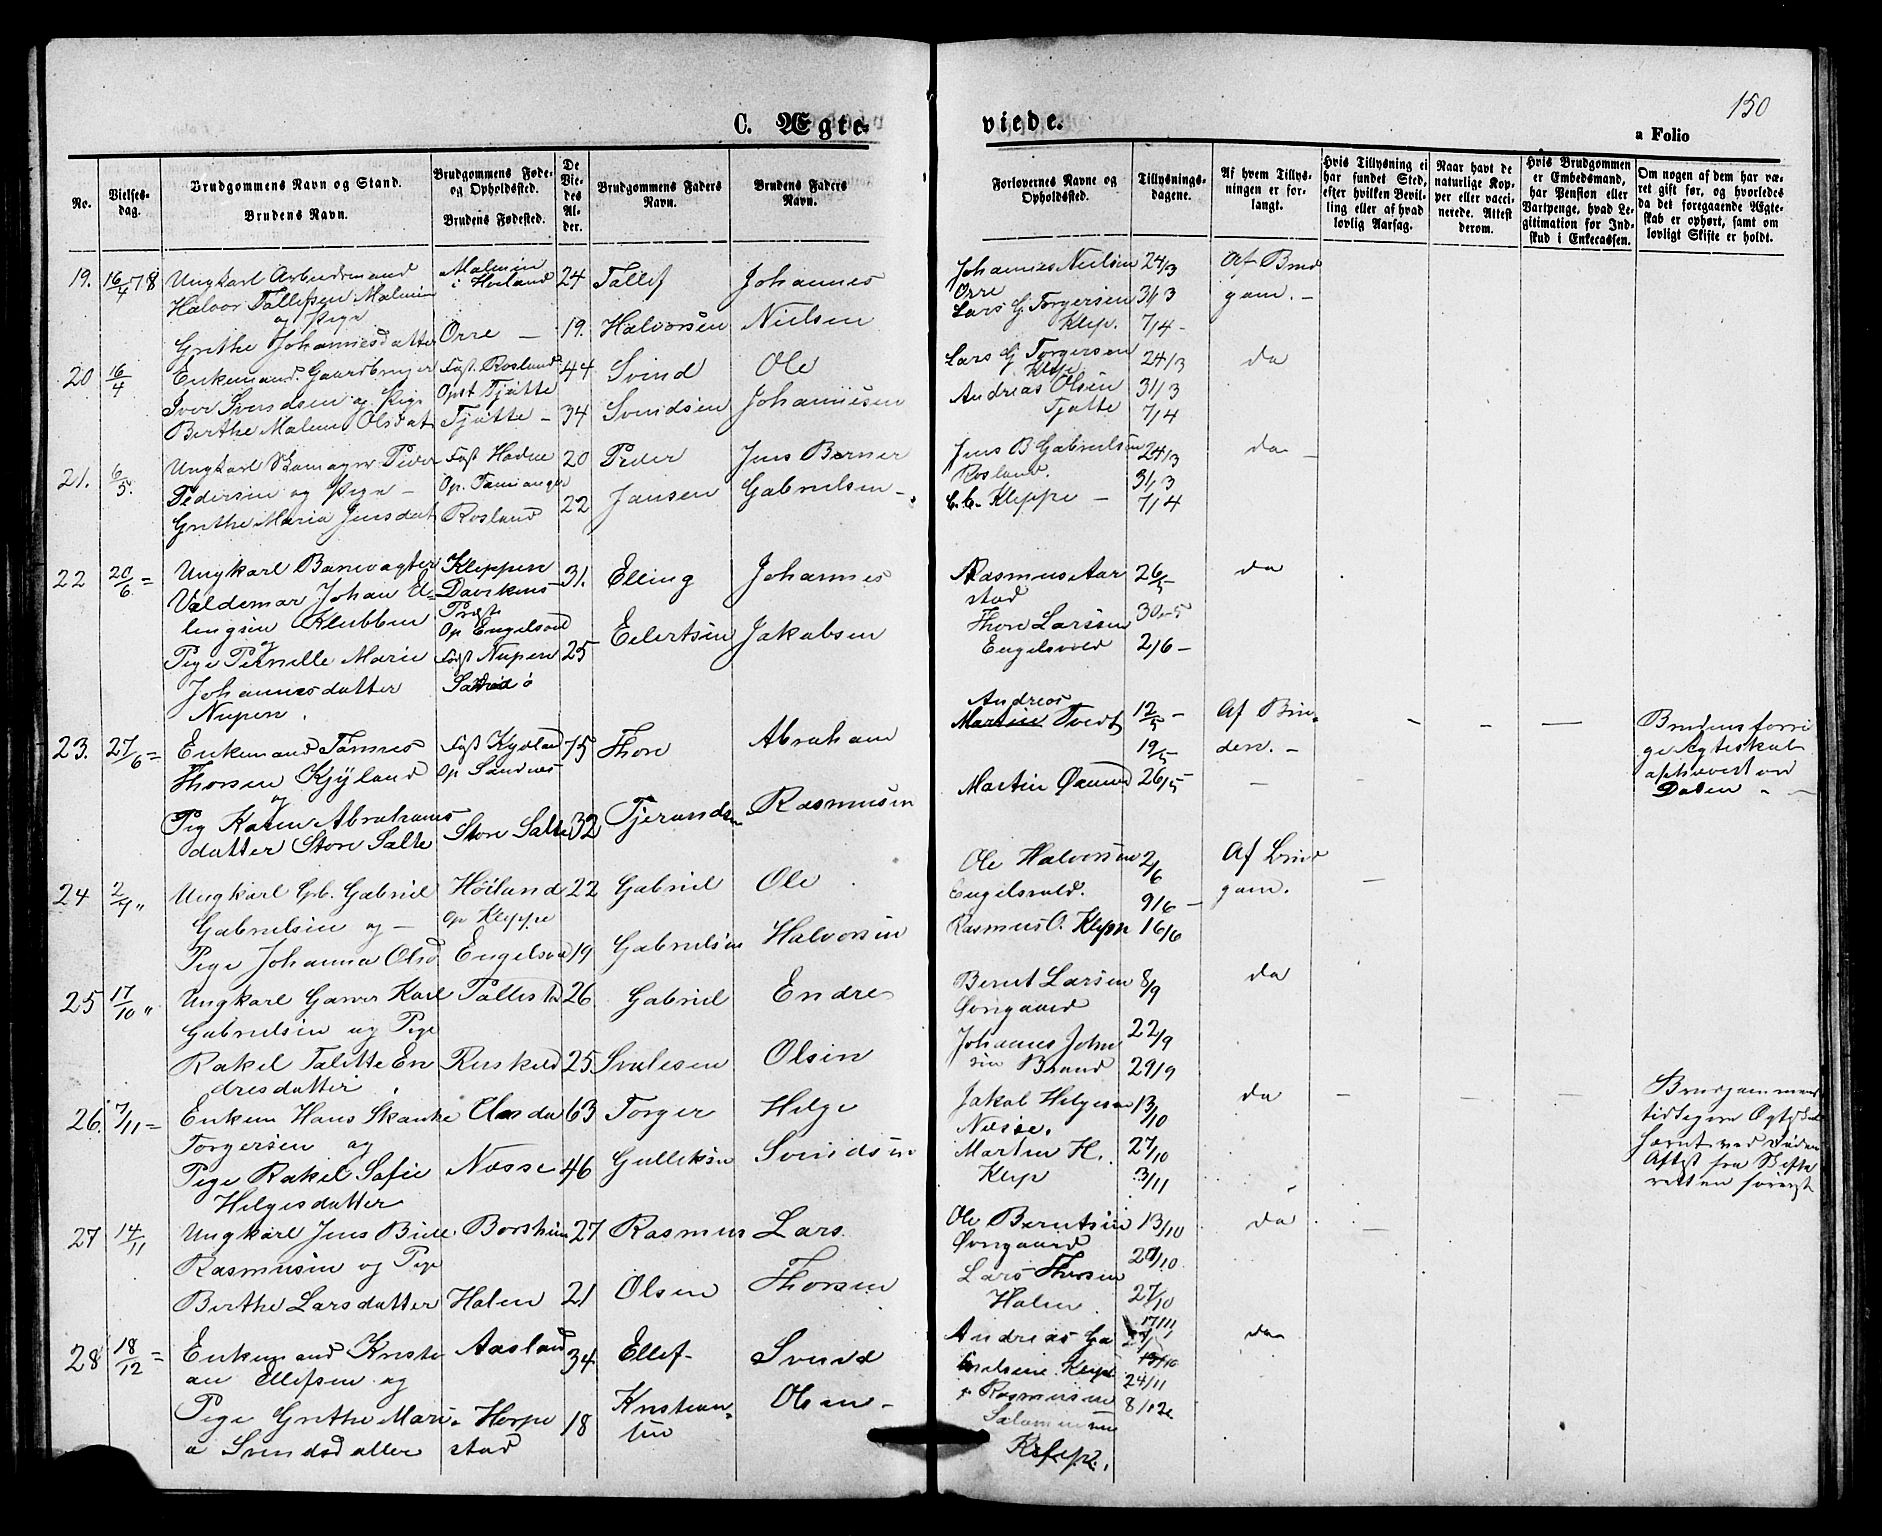 150
C. Ægte-
viede.
a Folio
No.
Vielses-
dag.
Brudgommens Navn og Stand.
Brudens Navn.
Brudgommens Føde-
og Opholdssted.
Brudens Fødested.
De
Vie-
des
Al-
der.
Brudgommens Faders
Navn.
Brudens Faders
Navn.
Forlovernes Navne og
Opholdssted.
Tillysnings-
dagene.
Af hvem Tillys-
ningen er for-
langt.
Hvis Tillysning ei
har fundet Sted,
efter hvilken Bevil-
ling eller af hvad
lovlig Aarsag.
Naar havt de
naturlige Kop-
per eller vacci-
nerede. Attest
derom.
Hvis Brudgommen
er Embedsmand,
har Pension eller
Vartpenge, hvad Le-
gitimation for Ind-
skud i Enkecassen.
Om nogen af dem har væ-
ret gift før, og hvorledes
da det foregaaende Ægte-
skab er ophørt, samt om
lovligt Skifte er holdt.
19.
16/4 78
Ungkarl Arbeidsmand
Halvor Tallefsen Malmin
og Pige
Grethe Johannesdatter
Malmin
i Høiland
Orre —
24
19.
Tallef
Halvorsen
Johannes
Nielsen
Johannes Nielsen
Orre
Lars G. Torgersen
Klep.
24/3
31/3
7/4 -
Af Brud
gom. —
20
16/4
Enkemand. Gaardbruger
Iver Svendsen og Pige
Berthe Malene Olsdat
Født Rosland
Opst Tjøtte
Tjøtte —
44
34
Svend
Svendsen
Ole
Johannesen
Lars G Torgersen
Klep
Andreas Olsen
Tjøtte
24/3
31/3
7/4
da
21.
6/5.
Ungkarl Skomager Peder
Pedersen og Pige —
Grethe Maria Jensdat
Født
Op.
Rosland
20
22
Peder
Jansen
Jens Berner
Gabrielsen —
Jens B Gabrielsen
Rosland.
Kleppe —
24/3
31/3
7/4
da —
22
20/6 =
Ungkarl Banevogter
Valdemar Johan El-
lingsen Klubben
og
Pige Pernille Marie
Johannesdatter
Nupen.
Kleppen
Daviknes
Præst
Op Engelsvold
Født Nupen
31.
25
Elling
Eilertsen
Johannes
Jakobsen
Rasmus Aar
stad
Thore Larsen
Engelsvold
26/5
30-5
2/6 —
da
23.
27/6 =
Enkemand Tønnes
Thorsen Kjylland
og
Pig Karen Abrahams
datter Store Salte
Født Kydland
Op Sandnes
Store Salte
75
32
Thore
Tjerandsen
Abraham
Rasmusen
Andreas
Martin Tvedt
Martin
12/5 —
19/5
26/5 —
Af Bru-
den. —
Brudens forri
ge Ægteskab
ophævet ved
Døden
24
2/7 „
Ungkarl Grb. Gabriel
Gabrielsen og —
Pige Johanna Olsd
Høiland
op Kleppe
Engelsvol
22
19
Gabriel
Gabrielsen
Ole
Halvorsen
Ole Halvorsen
Engelsvold.
Rasmus O. Klepp
2/6
9/6 —
16/6
Af Brud
gom.
25
17/10 „
Ungkarl Garver Karl
Gabrielsen og Pige
Rakel Talette En
dresdatter
26
25
Gabriel
Svalesen
Endre
Olsen
Bernt Larsen
Øvrgaard
Johannes John
sen Braud
8/9
22/9
29/9
da
26.
7/11 =
Enkem Hans Skanke
Torgersen og
Pige Rakel Sofie
Helgesdatter
Næsse
63
46
Torger
Gulleksen
Helge
Svendsen
Jakob Helgesen
Næsse.
Martin H.
Klep
13/10
27/10
3/11
da
Brudgommens
tidligere Ægteskab
hævet ved Døden
Attest fra Skifte
retten forevist
27
14/11
Ungkarl Jens Bue
Rasmusen og Pige
Berthe Larsdatter
Borsheim
Holen
27
21
Rasmus
Olsen
Lars
Thorsen
Ole Berntsen
Øvrgaard
Lars Thorsen
Holen
13/10
20/10
27/10
da
28
18/12
Enkemand Kristi
an Ellefsen og
Pige Grethe Mari
a Svendsdatter
Aasland
Herpe
stad
34
18
Ellef
Kristian-
sen
Svend
Olsen —
Andreas Ga
brielsen Klep
Rasmusen
Klep.
17/11
24/11
8/12
da